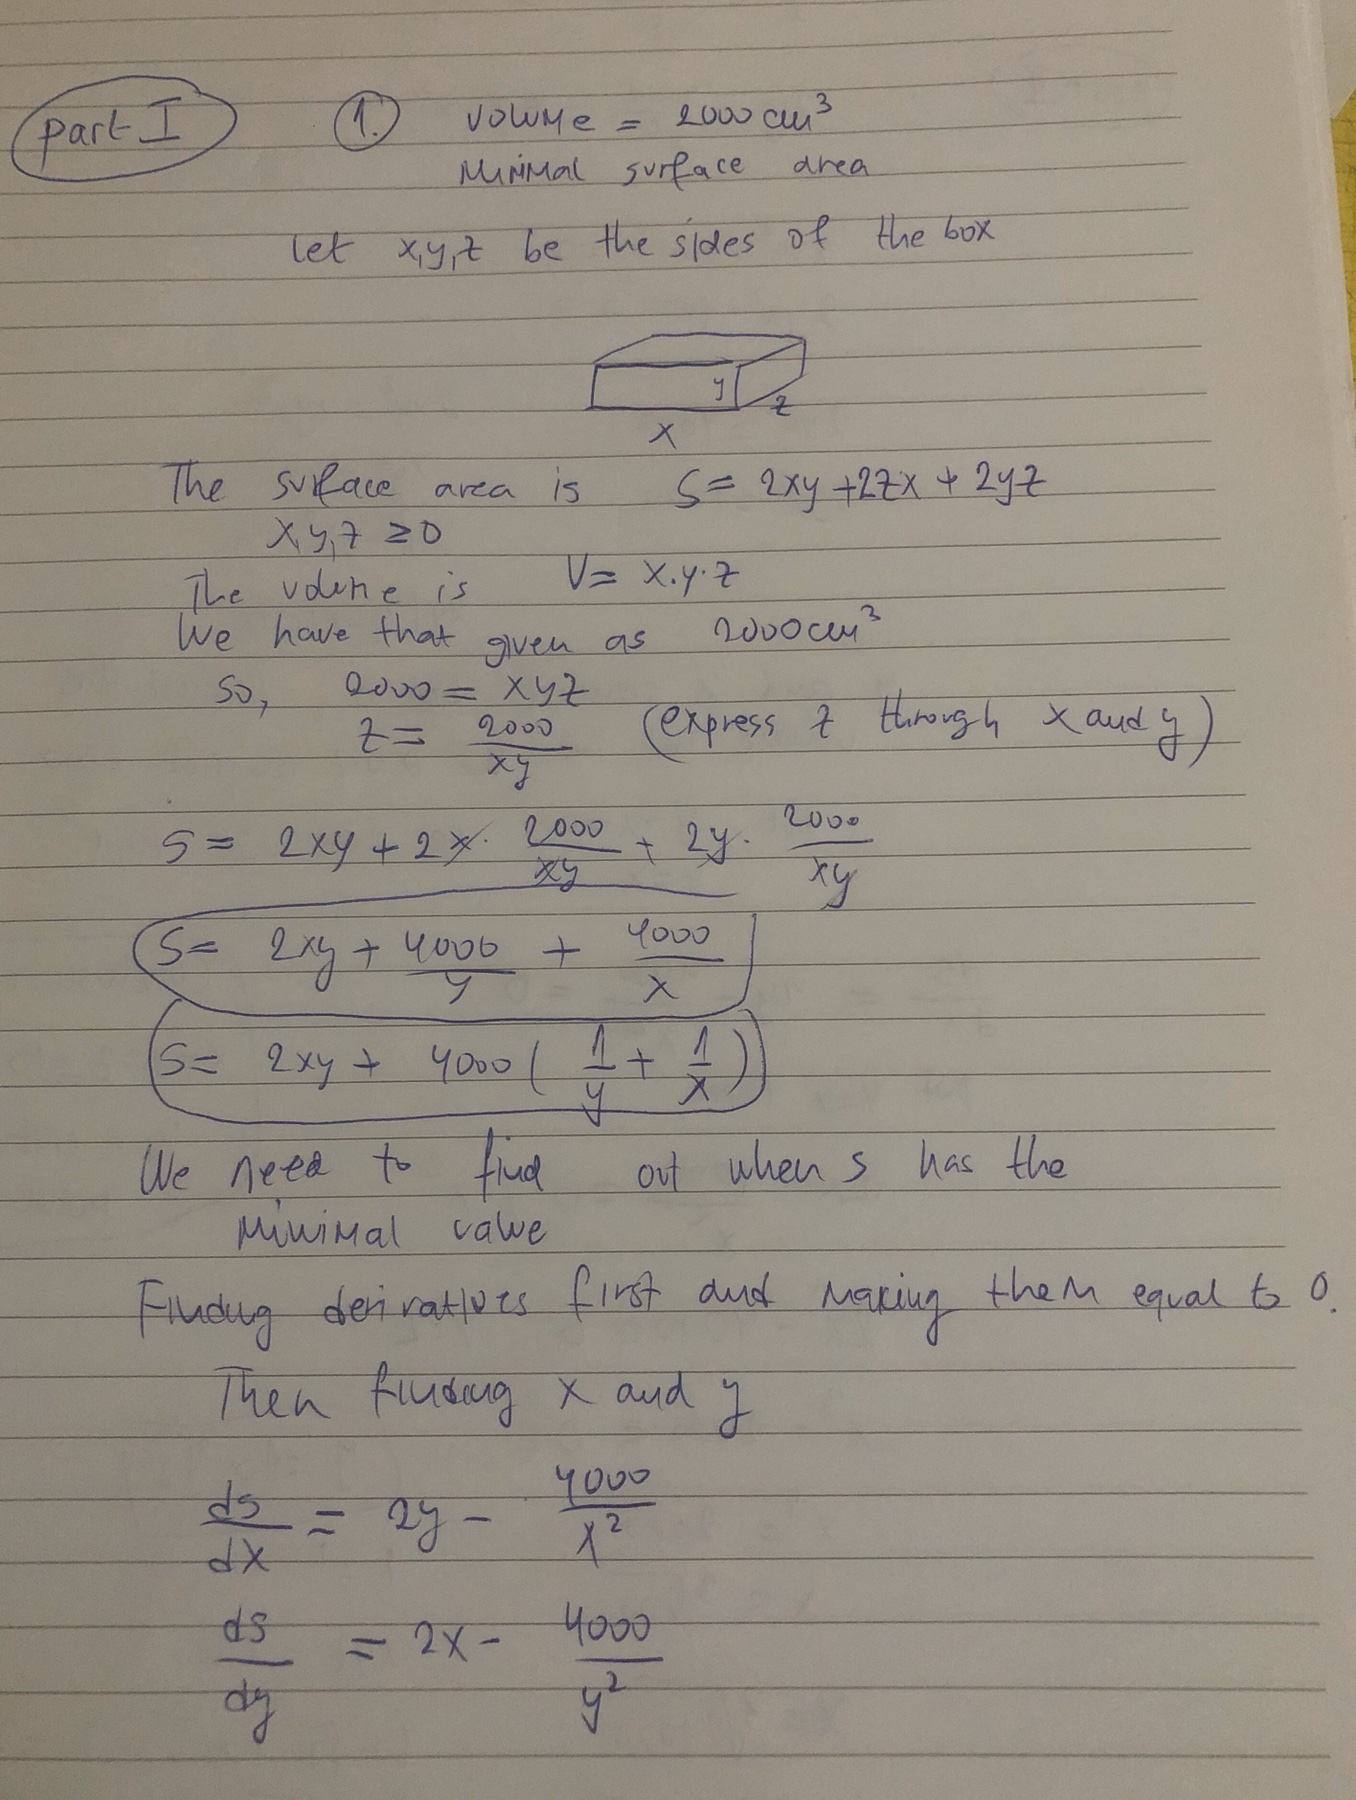 part I
1. volume = 2000 cm³
Minimal surface area
let x,y,z be the sides of the box
y
z
x
The surface area is S = 2xy + 2zx + 2yz
x,y,z ≥ 0
The volume is V = x.y.z
We have that given as 2000 cm³
so, 2000 = xyz
z = 2000/xy (express z through x and y)
S = 2xy + 2x · 2000/xy + 2y · 2000/xy
S = 2xy + 4000/y + 4000/x
S = 2xy + 4000 ( 1/y + 1/x )
We need to find out when s has the
Minimal value
Finding derivatives first and making them equal to 0.
Then finding x and y
ds/dx = 2y - 4000/x²
ds/dy = 2x - 4000/y²